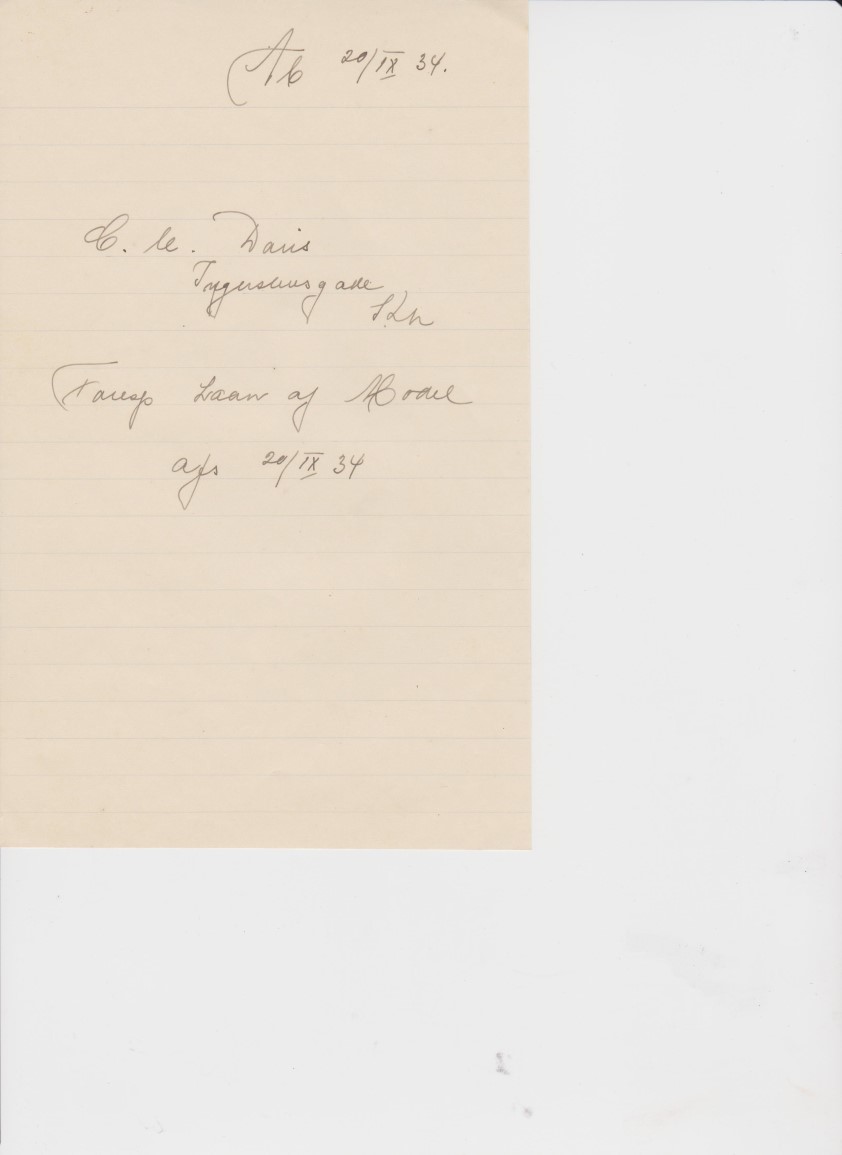 Ab 20/IX 34.
C. le. Davis
Tygershusgade
Kbh
Foresp Laan af Model
afs 20/IX 34